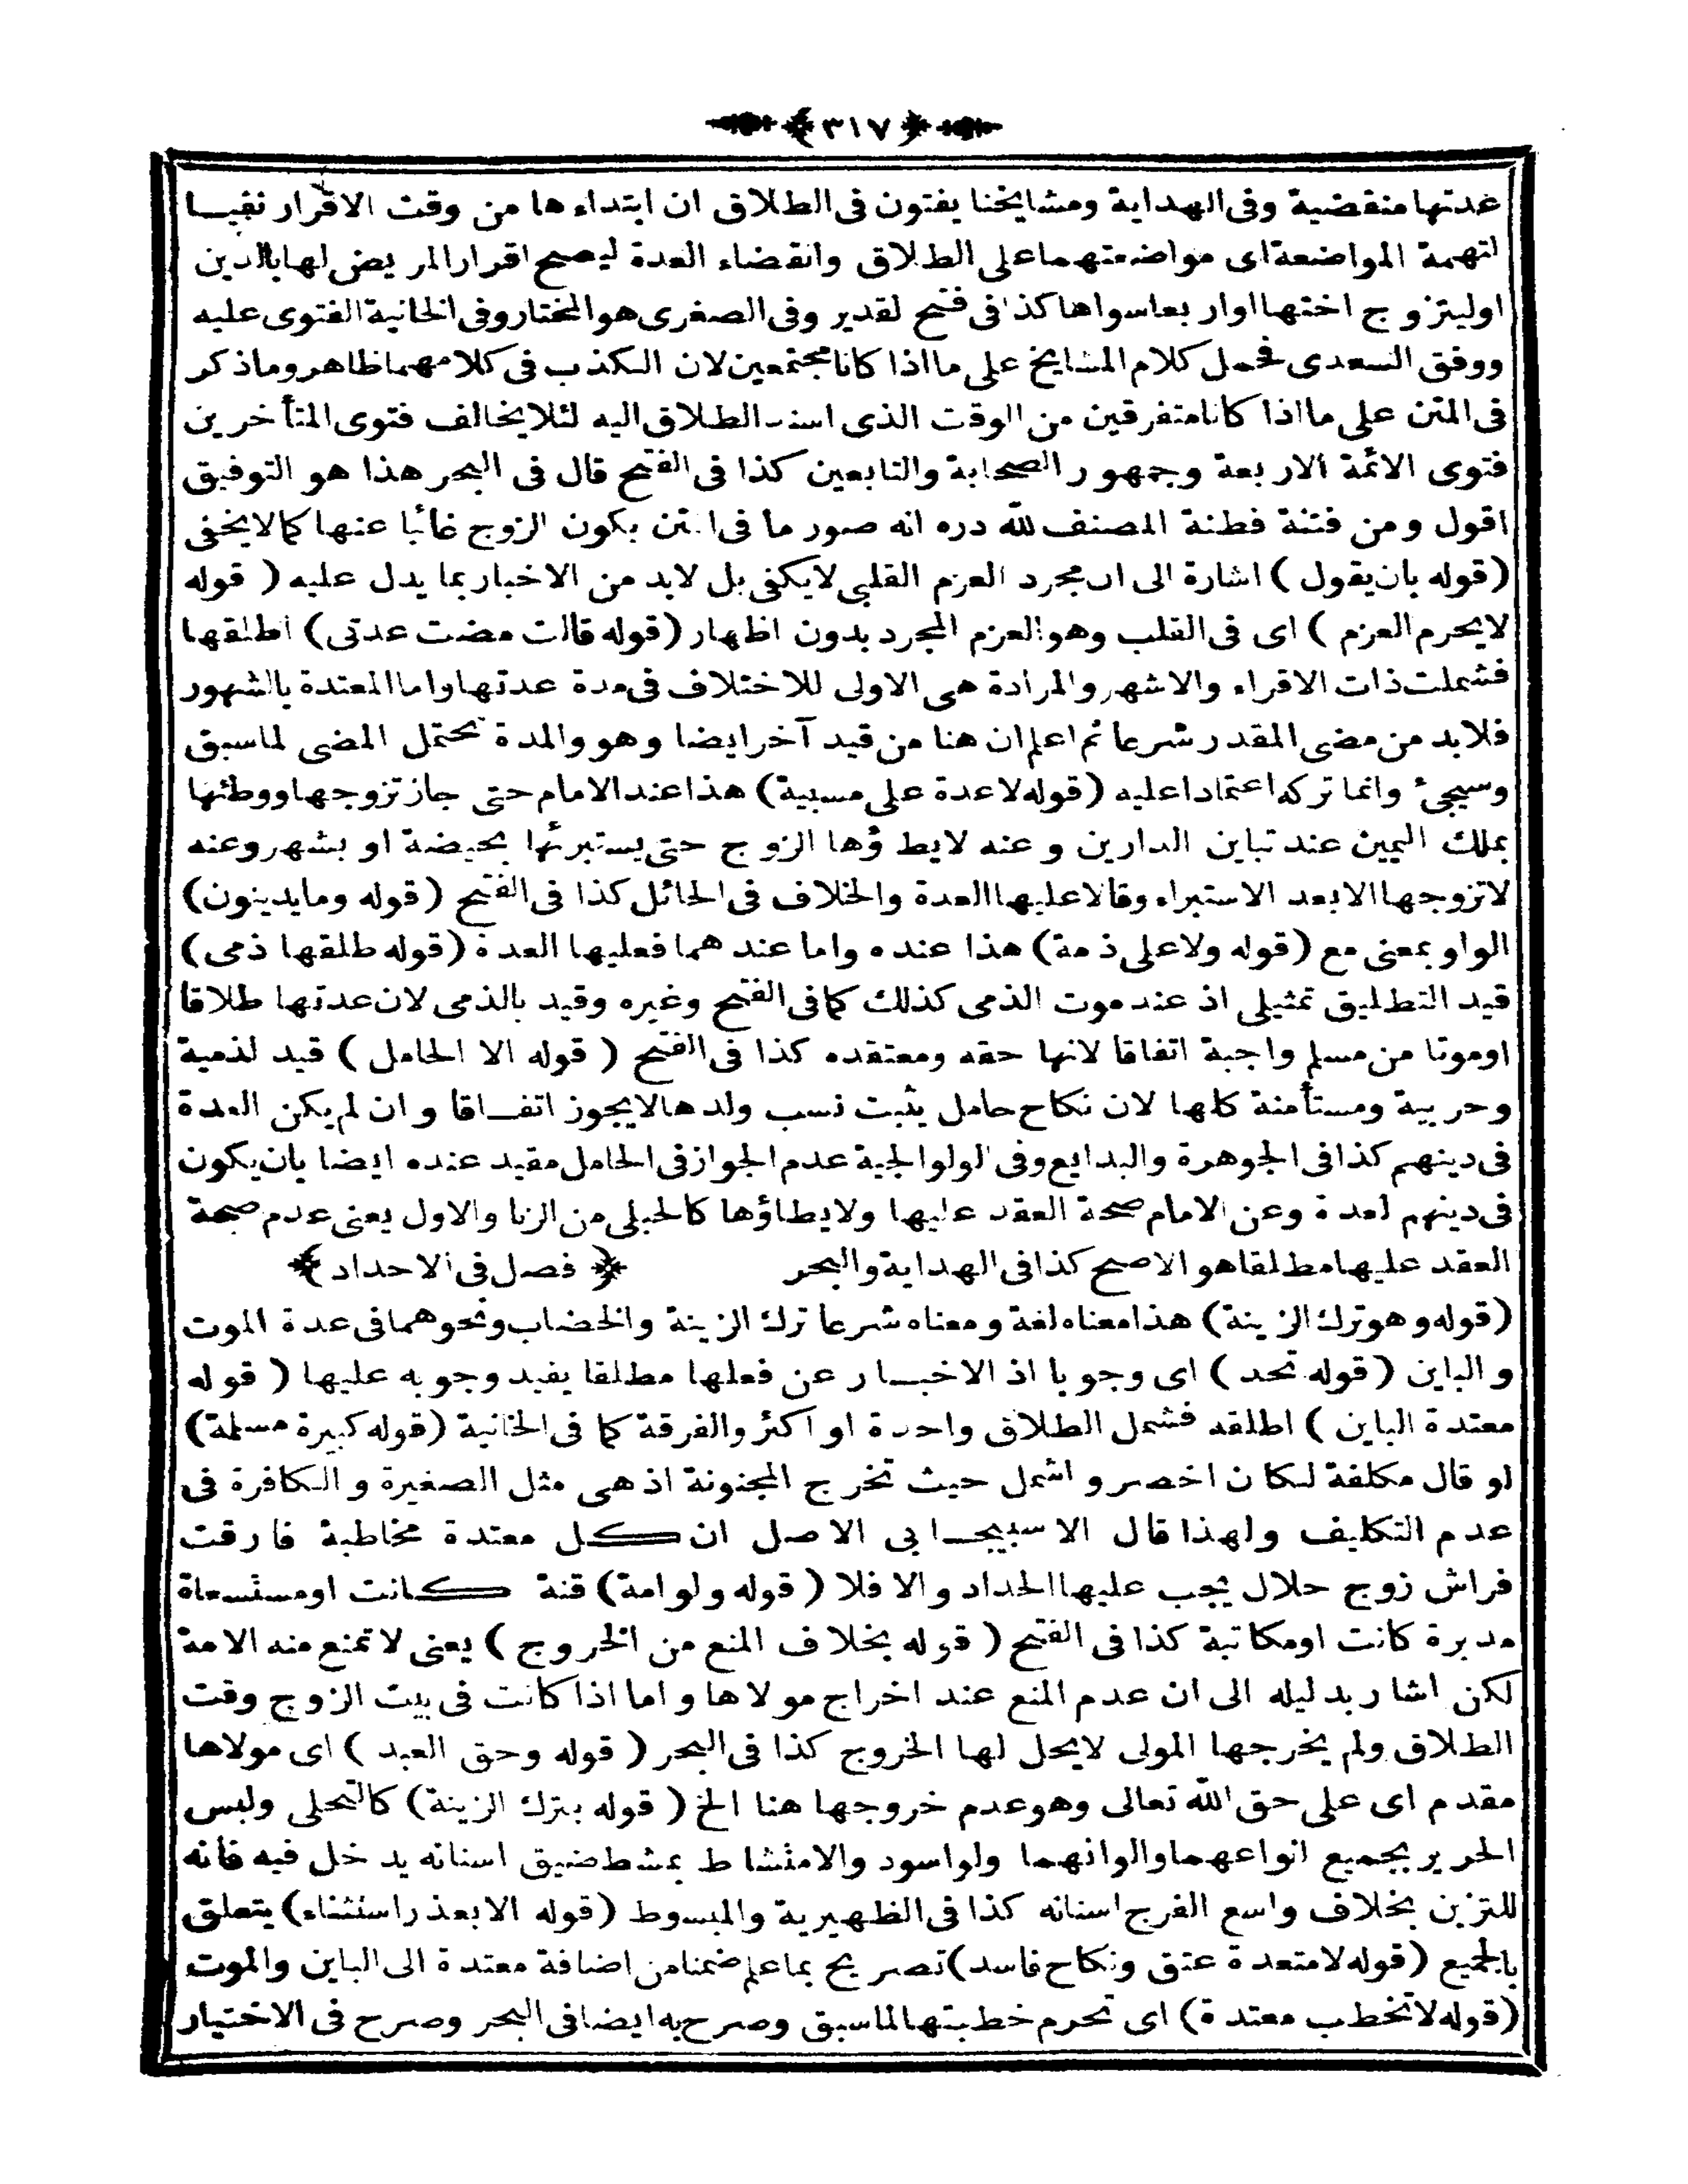 ﴿٣١٧﴾
عدتها منقضية وفى الهداية ومشايخنا يفتون فى الطلاق ان ابتداءها من وقت الاقرار نفيا
لتهمة المواضعة اى مواضعتهما على الطلاق وانقضاء العدة ليصح اقرار المريض لها بالدين
اوليتزوج اختها اواربعا سواها كذا فى فتح لقدير وفى الصغرى هو المختار وفى الخانية الفتوى عليه
ووفق السعدى فحمل كلام المشايخ على ما اذا كانا مجتمعين لان الكذب فى كلامهما ظاهر وما ذكر
فى المتن على ما اذا كانا متفرقين من الوقت الذى اسند الطلاق اليه لئلا يخالف فتوى المتأخرين
فتوى الائمة الاربعة وجمهور الصحابة والتابعين كذا فى الفتح قال فى البحر هذا هو التوفيق
اقول ومن فتنة فطنة المصنف لله دره انه صور ما فى المتن بكون الزوج غائبا عنها كما لا يخفى
(قوله بان يقول) اشارة الى ان مجرد العزم القلبى لا يكفى بل لابد من الاخبار بما يدل عليه (قوله
لا يحرم العزم) اى فى القلب وهو العزم المجرد بدون اظهار (قوله قالت مضت عدتى) اطلقها
فشملت ذات الاقراء والاشهر والمرادة هى الاولى للاختلاف فى مدة عدتها واما المعتدة بالشهور
فلابد من مضى المقدر شرعا ثم اعلم ان هنا من قيد آخر ايضا وهو والمدة تحتمل المضى لما سبق
وسيجئ وانما تركه اعتمادا عليه (قوله لاعدة على مسبية) هذا عند الامام حتى جاز تزوجها ووطئها
بملك اليمين عند تباين الدارين وعنه لا يطؤها الزوج حتى يستبرئها بحيضة او بشهر وعنه
لا تزوجها الا بعد الاستبراء وقالا عليها العدة والخلاف فى الحائل كذا فى الفتح (قوله وما يدينون)
الواو بمعنى مع (قوله ولا على ذمة) هذا عنده واما عندهما فعليها العدة (قوله طلقها ذمى)
قيد التطليق تمثيلى اذ عند موت الذمى كذلك كما فى الفتح وغيره وقيد بالذمى لان عدتها طلاقا
اوموتا من مسلم واجبة اتفاقا لانها حقه ومعتقده كذا فى الفتح (قوله الا الحامل) قيد لذمية
وحربية ومستأمنة كلها لان نكاح حامل يثبت نسب ولدها لا يجوز اتفاقا وان لم يكن العدة
فى دينهم كذا فى الجوهرة والبدايع وفى لولوالجية عدم الجواز فى الحامل مقيد عنده ايضا بان يكون
فى دينهم لعدة وعن الامام صحة العقد عليها ولا يطاؤها كالحبلى من الزنا والاول يعنى عدم صحة
العقد عليها مطلقا هو الاصح كذا فى الهداية والبحر ﴿فصل فى الاحداد﴾
(قوله وهو ترك الزينة) هذا معناه لغة ومعناه شرعا ترك الزينة والخضاب ونحوهما فى عدة الموت
والباين (قوله تحد) اى وجوبا اذ الاخبار عن فعلها مطلقا يفيد وجوبه عليها (قوله
معتدة الباين) اطلقه فشمل الطلاق واحدة او اكثر والفرقة كما فى الخانية (قوله كبيرة مسلمة)
لو قال مكلفة لكان اخصر واشمل حيث تخرج المجنونة اذ هى مثل الصغيرة والكافرة فى
عدم التكليف ولهذا قال الاسبيجابى الاصل ان كل معتدة مخاطبة فارقت
فراش زوج حلال يجب عليها الحداد والا فلا (قوله ولوامة) قنة كانت اومستسعاة
مدبرة كانت اومكاتبة كذا فى الفتح (قوله بخلاف المنع من الخروج) يعنى لا تمنع منه الامة
لكن اشار بدليله الى ان عدم المنع عند اخراج مولاها واما اذا كانت فى بيت الزوج وقت
الطلاق ولم يخرجها المولى لايحل لها الخروج كذا فى البحر (قوله وحق العبد) اى مولاها
مقدم اى على حق الله تعالى وهو عدم خروجها هنا الخ (قوله بترك الزينة) كالتحلى ولبس
الحرير بجميع انواعهما والوانهما ولواسود والامتشاط بمشط ضيق اسنانه يدخل فيه فانه
للتزين بخلاف واسع الفرج اسنانه كذا فى الظهيرية والمبسوط (قوله الا بعذر استثناء) يتعلق
بالجميع (قوله لا متعدة عتق ونكاح فاسد) تصريح بما علم ضمنا من اضافة معتدة الى الباين والموت
(قوله لا تخطب معتدة) اى تحرم خطبتها لما سبق وصرح به ايضا فى البحر وصرح فى الاختيار